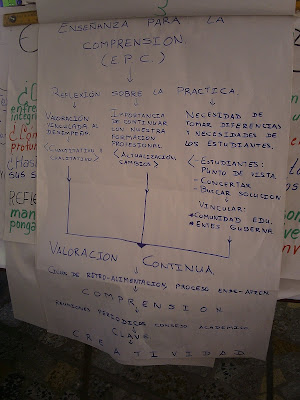 ENSEÑANZA PARA LA
COMPRENSION
(E.P.C.)
REFLEXIÓN SOBRE LA PRACTICA
VALORACIÓN
VINCULADA AL
DESEMPEÑO.
<CUANTITATIVO Y
CUALITATIVO>
IMPORTANCIA
DE CONTINUAR
CON NUESTRA
FORMACION
PROFESIONAL.
<ACTUALIZACIÓN,
CAMBIOS>
NECESIDAD DE
TOMAR DIFERENCIAS
Y NECESIDADES DE
LOS ESTUDIANTES.
<ESTUDIANTES:
PUNTO DE VISTA
- CONCERTAR
- BUSCAR SOLUCIÓN
VINCULAR:
*COMUNIDAD EDU.
*ENTES GUBERNA
VALORACION CONTINUA
RETRO-ALIMENTACION, PROCESO
COMPRENSION
PERIODICOS CONSEJO ACADEMICO
CLAVE
CREATIVIDAD
REFLE
man
ponga